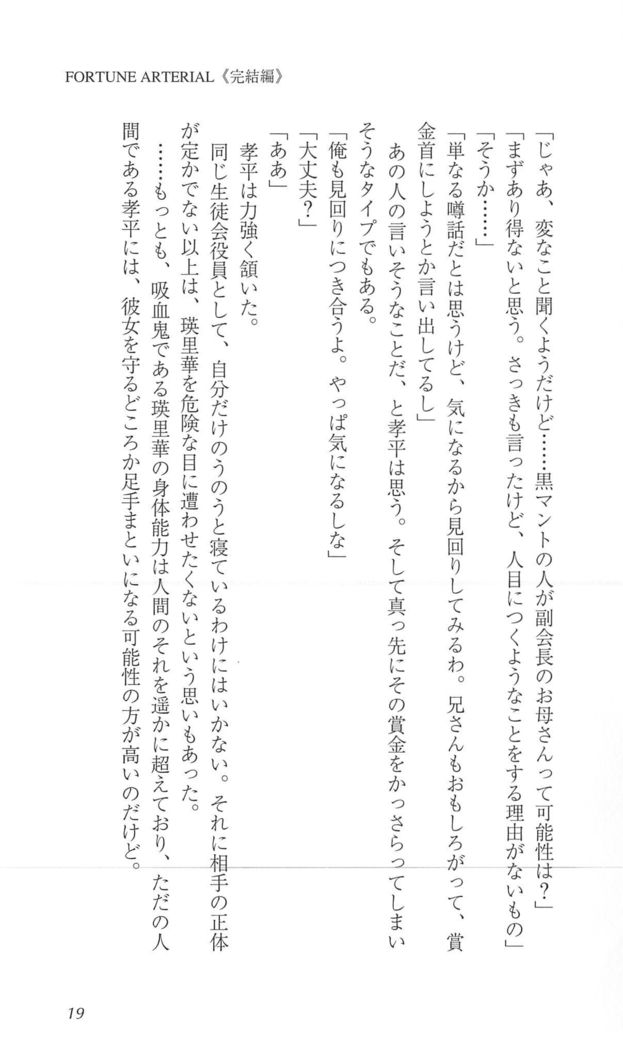 FORTUNE ARTERIAL《完結編》
「じゃあ、変なこと聞くようだけど……黒マントの人が副会長のお母さんって可能性は？」
「まずあり得ないと思う。さっきも言ったけど、人目につくようなことをする理由がないもの」
「そうか……」
「単なる噂話だとは思うけど、気になるから見回りしてみるわ。兄さんもおもしろがって、賞
金首にしようとか言い出してるし」
あの人の言いそうなことだ、と孝平は思う。そして真っ先にその賞金をかっさらってしまい
そうなタイプでもある。
「俺も見回りにつき合うよ。やっぱ気になるしな」
「大丈夫？」
「ああ」
孝平は力強く頷いた。
同じ生徒会役員として、自分だけのうのうと寝ているわけにはいかない。それに相手の正体
が定かでない以上は、瑛里華を危険な目に遭わせたくないという思いもあった。
……もっとも、吸血鬼である瑛里華の身体能力は人間のそれを遥かに超えており、ただの人
間である孝平には、彼女を守るどころか足手まといになる可能性の方が高いのだけど。
19